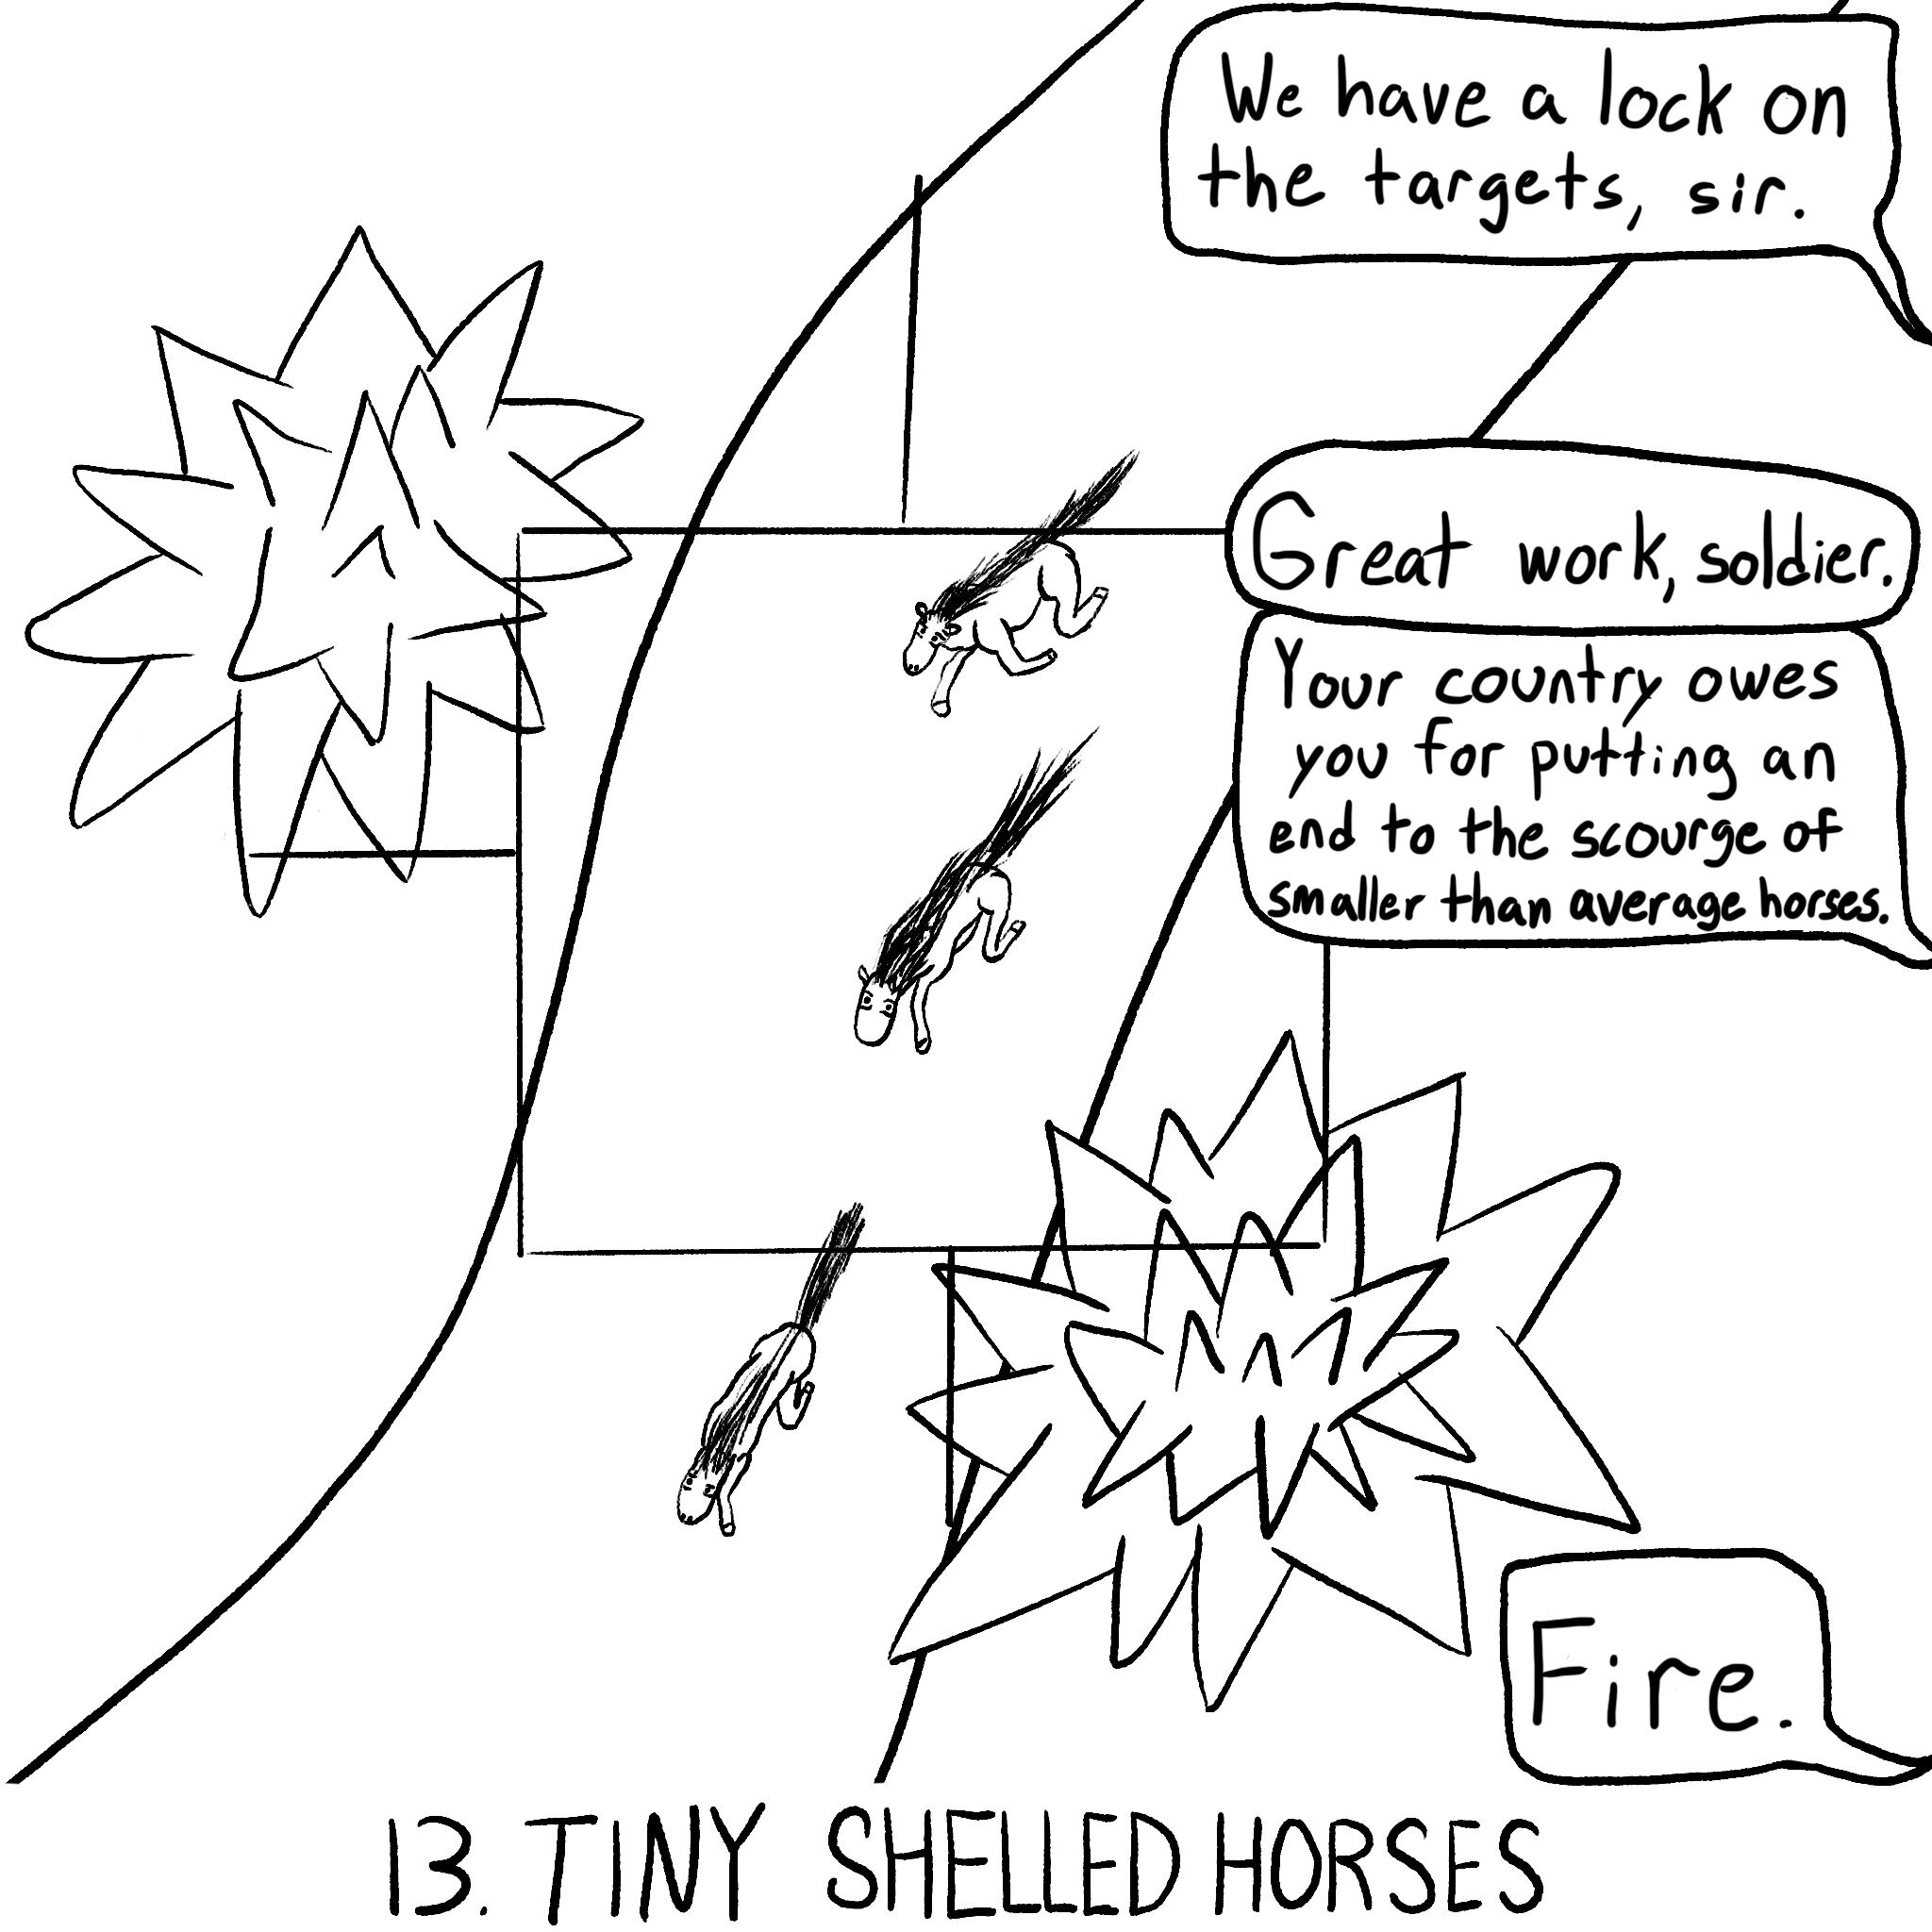 We have a lock on
the targets, sir.
Great work, soldier.
Your country owes
you for putting an
end to the scourge of
smaller than average horses.
Fire.
13. TINY SHELLED HORSES